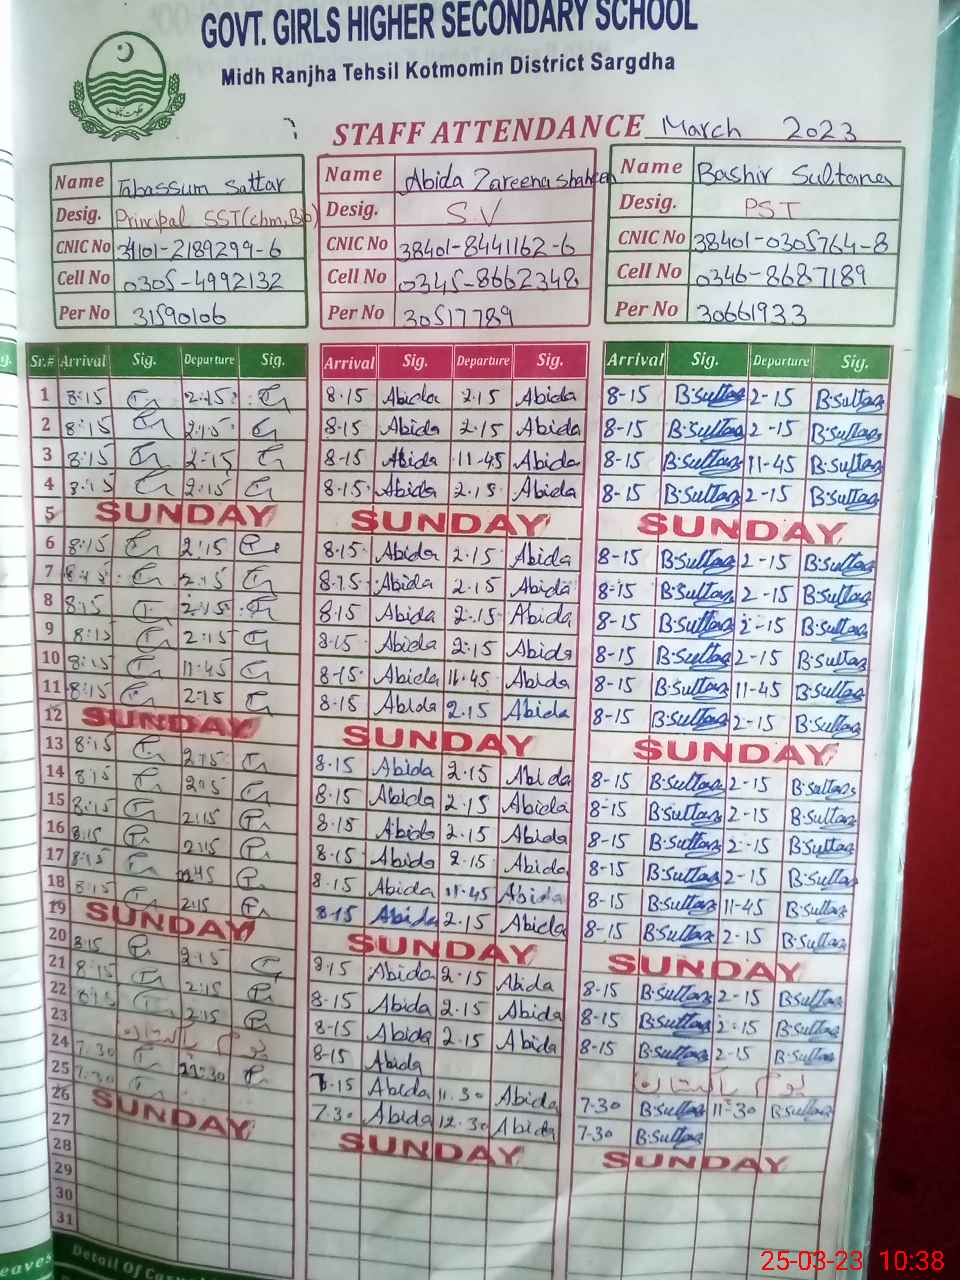 GOVT. GIRLS HIGHER SECONDARY SCHOOL
Midh Ranjha Tehsil Kotmomin District Sargdha
STAFF ATTENDANCE March 2023
Name Tabassum Sattar Name Abida Zareena Shaheen Name Bashir Sultana
Desig. Principal SST(chm,Bio) Desig. S.V Desig. PST
CNIC No 34101-2189299-6 CNIC No 38401-8441162-6 CNIC No 38401-0305764-8
Cell No 0305-4992132 Cell No 0345-8662348 Cell No 0346-8687189
Per No 31590106 Per No 30517789 Per No 30661933
Sr.# Arrival Sig. Departure Sig. Arrival Sig. Departure Sig. Arrival Sig. Departure Sig.
1 8:15 2:15 8.15 Abida 2.15 Abida 8-15 B.Sultana 2-15 B.Sultana
2 8:15 2:15 8-15 Abida 2.15 Abida 8-15 B.Sultana 2-15 B.Sultana
3 8:15 2:15 8-15 Abida 11-45 Abida 8-15 B.Sultana 11-45 B.Sultana
4 8:15 2:15 8.15 Abida 2.15 Abida 8-15 B.Sultana 2-15 B.Sultana
5 SUNDAY SUNDAY SUNDAY
6 8:15 2:15 8.15 Abida 2.15 Abida 8-15 B.Sultana 2-15 B.Sultana
7 2:15 8.15 Abida 2.15 Abida 8-15 B.Sultana 2-15 B.Sultana
8 8:15 2:15 8.15 Abida 2.15 Abida 8-15 B.Sultana 2-15 B.Sultana
9 8:15 2:15 8.15 Abida 2.15 Abida 8-15 B.Sultana 2-15 B.Sultana
10 8:15 11-45 8-15 Abida 11.45 Abida 8-15 B.Sultana 11-45 B.Sultana
11 8:15 2:15 8-15 Abida 2.15 Abida 8-15 B.Sultana 2-15 B.Sultana
12 SUNDAY SUNDAY SUNDAY
13 8:15 2:15 8.15 Abida 2.15 Abida 8-15 B.Sultana 2-15 B.Sultana
14 8:15 2:15 8.15 Abida 2.15 Abida 8-15 B.Sultana 2-15 B.Sultana
15 8:15 2:15 8.15 Abida 2.15 Abida 8-15 B.Sultana 2-15 B.Sultana
16 8:15 2:15 8.15 Abida 2.15 Abida 8-15 B.Sultana 2-15 B.Sultana
17 8:15 8.15 Abida 11-45 Abida 8-15 B.Sultana 11-45 B.Sultana
18 8:15 2:15 8-15 Abida 2.15 Abida 8-15 B.Sultana 2-15 B.Sultana
19 SUNDAY SUNDAY SUNDAY
20 8:15 2:15 8.15 Abida 2.15 Abida 8-15 B.Sultana 2-15 B.Sultana
21 8:15 2:15 8-15 Abida 2.15 Abida 8-15 B.Sultana 2-15 B.Sultana
22 8:15 2:15 8-15 Abida 2.15 Abida 8-15 B.Sultana 2-15 B.Sultana
23 یوم پاکستان 8-15 Abida یوم پاکستان
24 7:30 Abida 11.30 Abida 7-30 B.Sultana 11-30 B.Sultana
25 7:30 7.30 Abida 12.30 Abida 7-30 B.Sultana
26 SUNDAY SUNDAY SUNDAY
27
28
29
30
31
eaves Detail Of
25-03-23 10:38